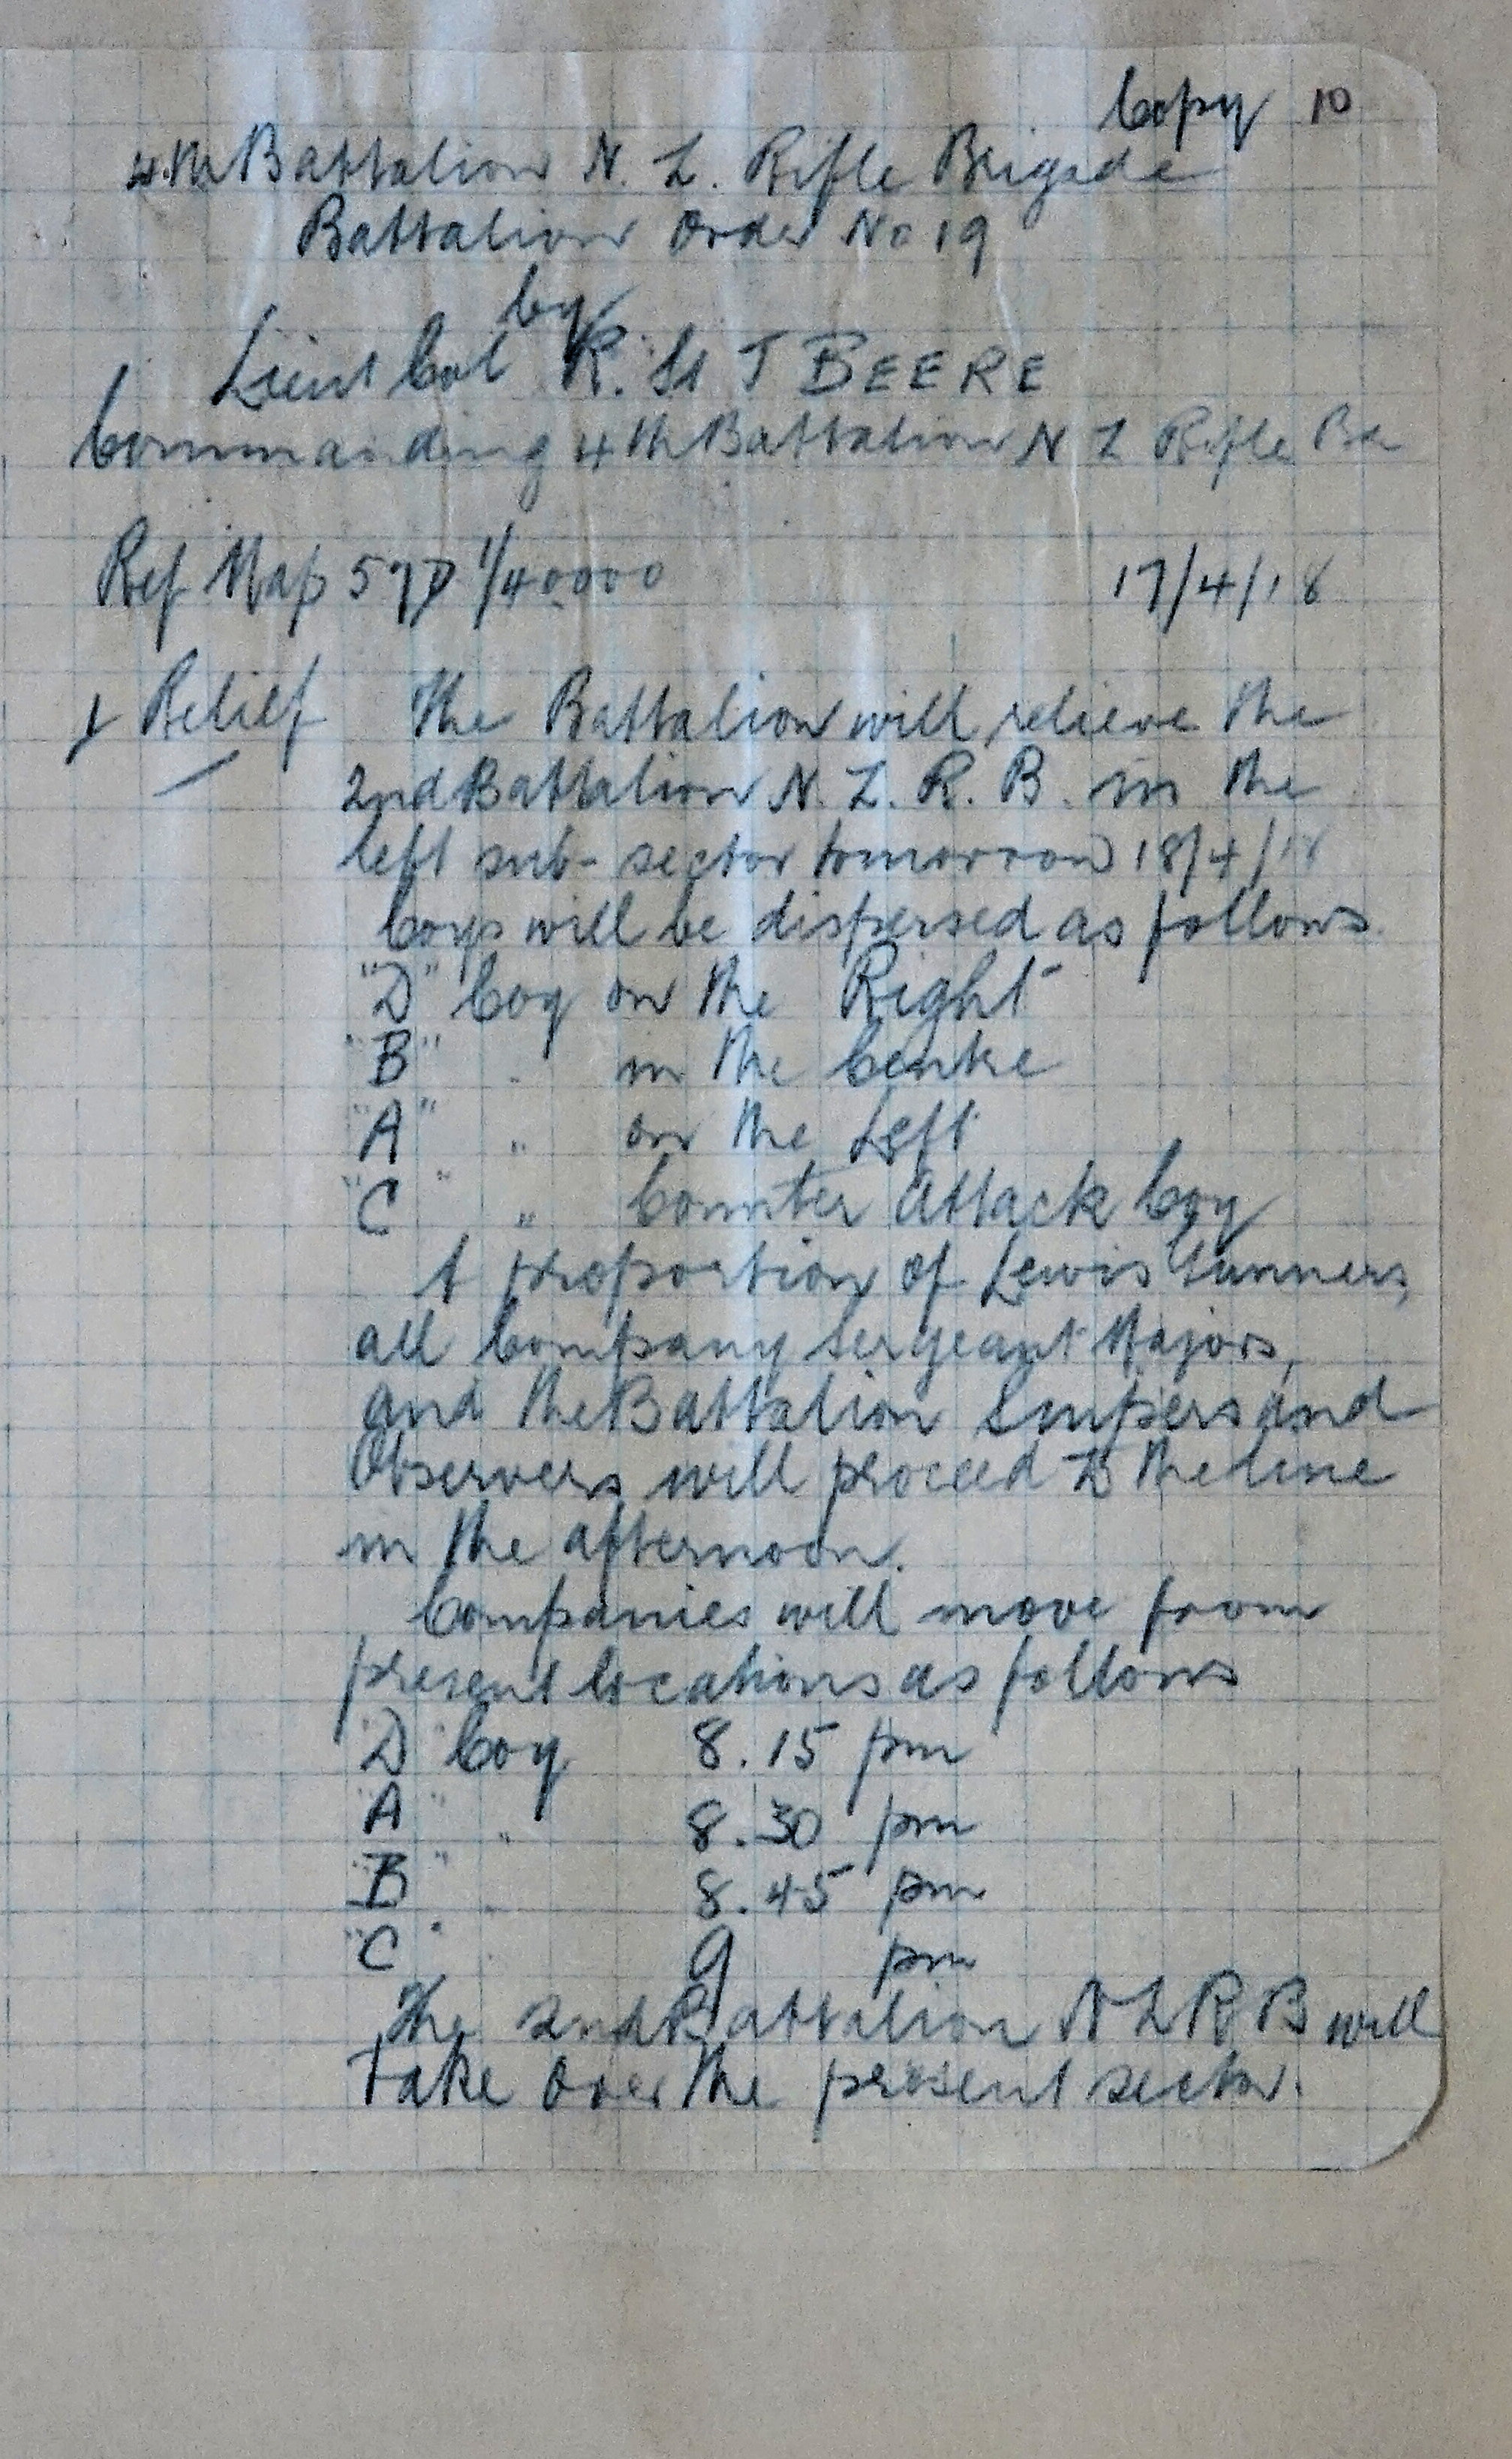 Copy 10
4th Battalion N. Z. Rifle Brigade
Battalion Order No 19
by
Lieut Col R. St J BEERE
Commanding 4th Battalion N Z Rifle Bde
Ref Map 57D 1/40000 17/4/18
1 Relief The Battalion will relieve the
2nd Battalion N. Z. R. B. in the
left sub-sector tomorrow 18/4/18
Coys will be dispersed as follows.
"D" Coy on the Right
"B" " in the Centre
"A" " on the Left
"C" " Counter Attack Coy
A proportion of Lewis Gunners,
all Company Sergeant Majors,
and the Battalion Snipers and
Observers will proceed to the line
in the afternoon.
Companies will move from
present locations as follows
"D" Coy 8.15 pm
"A" " 8.30 pm
"B" " 8.45 pm
"C" " 9 pm
The 2nd Battalion N Z R B will
take over the present sector.